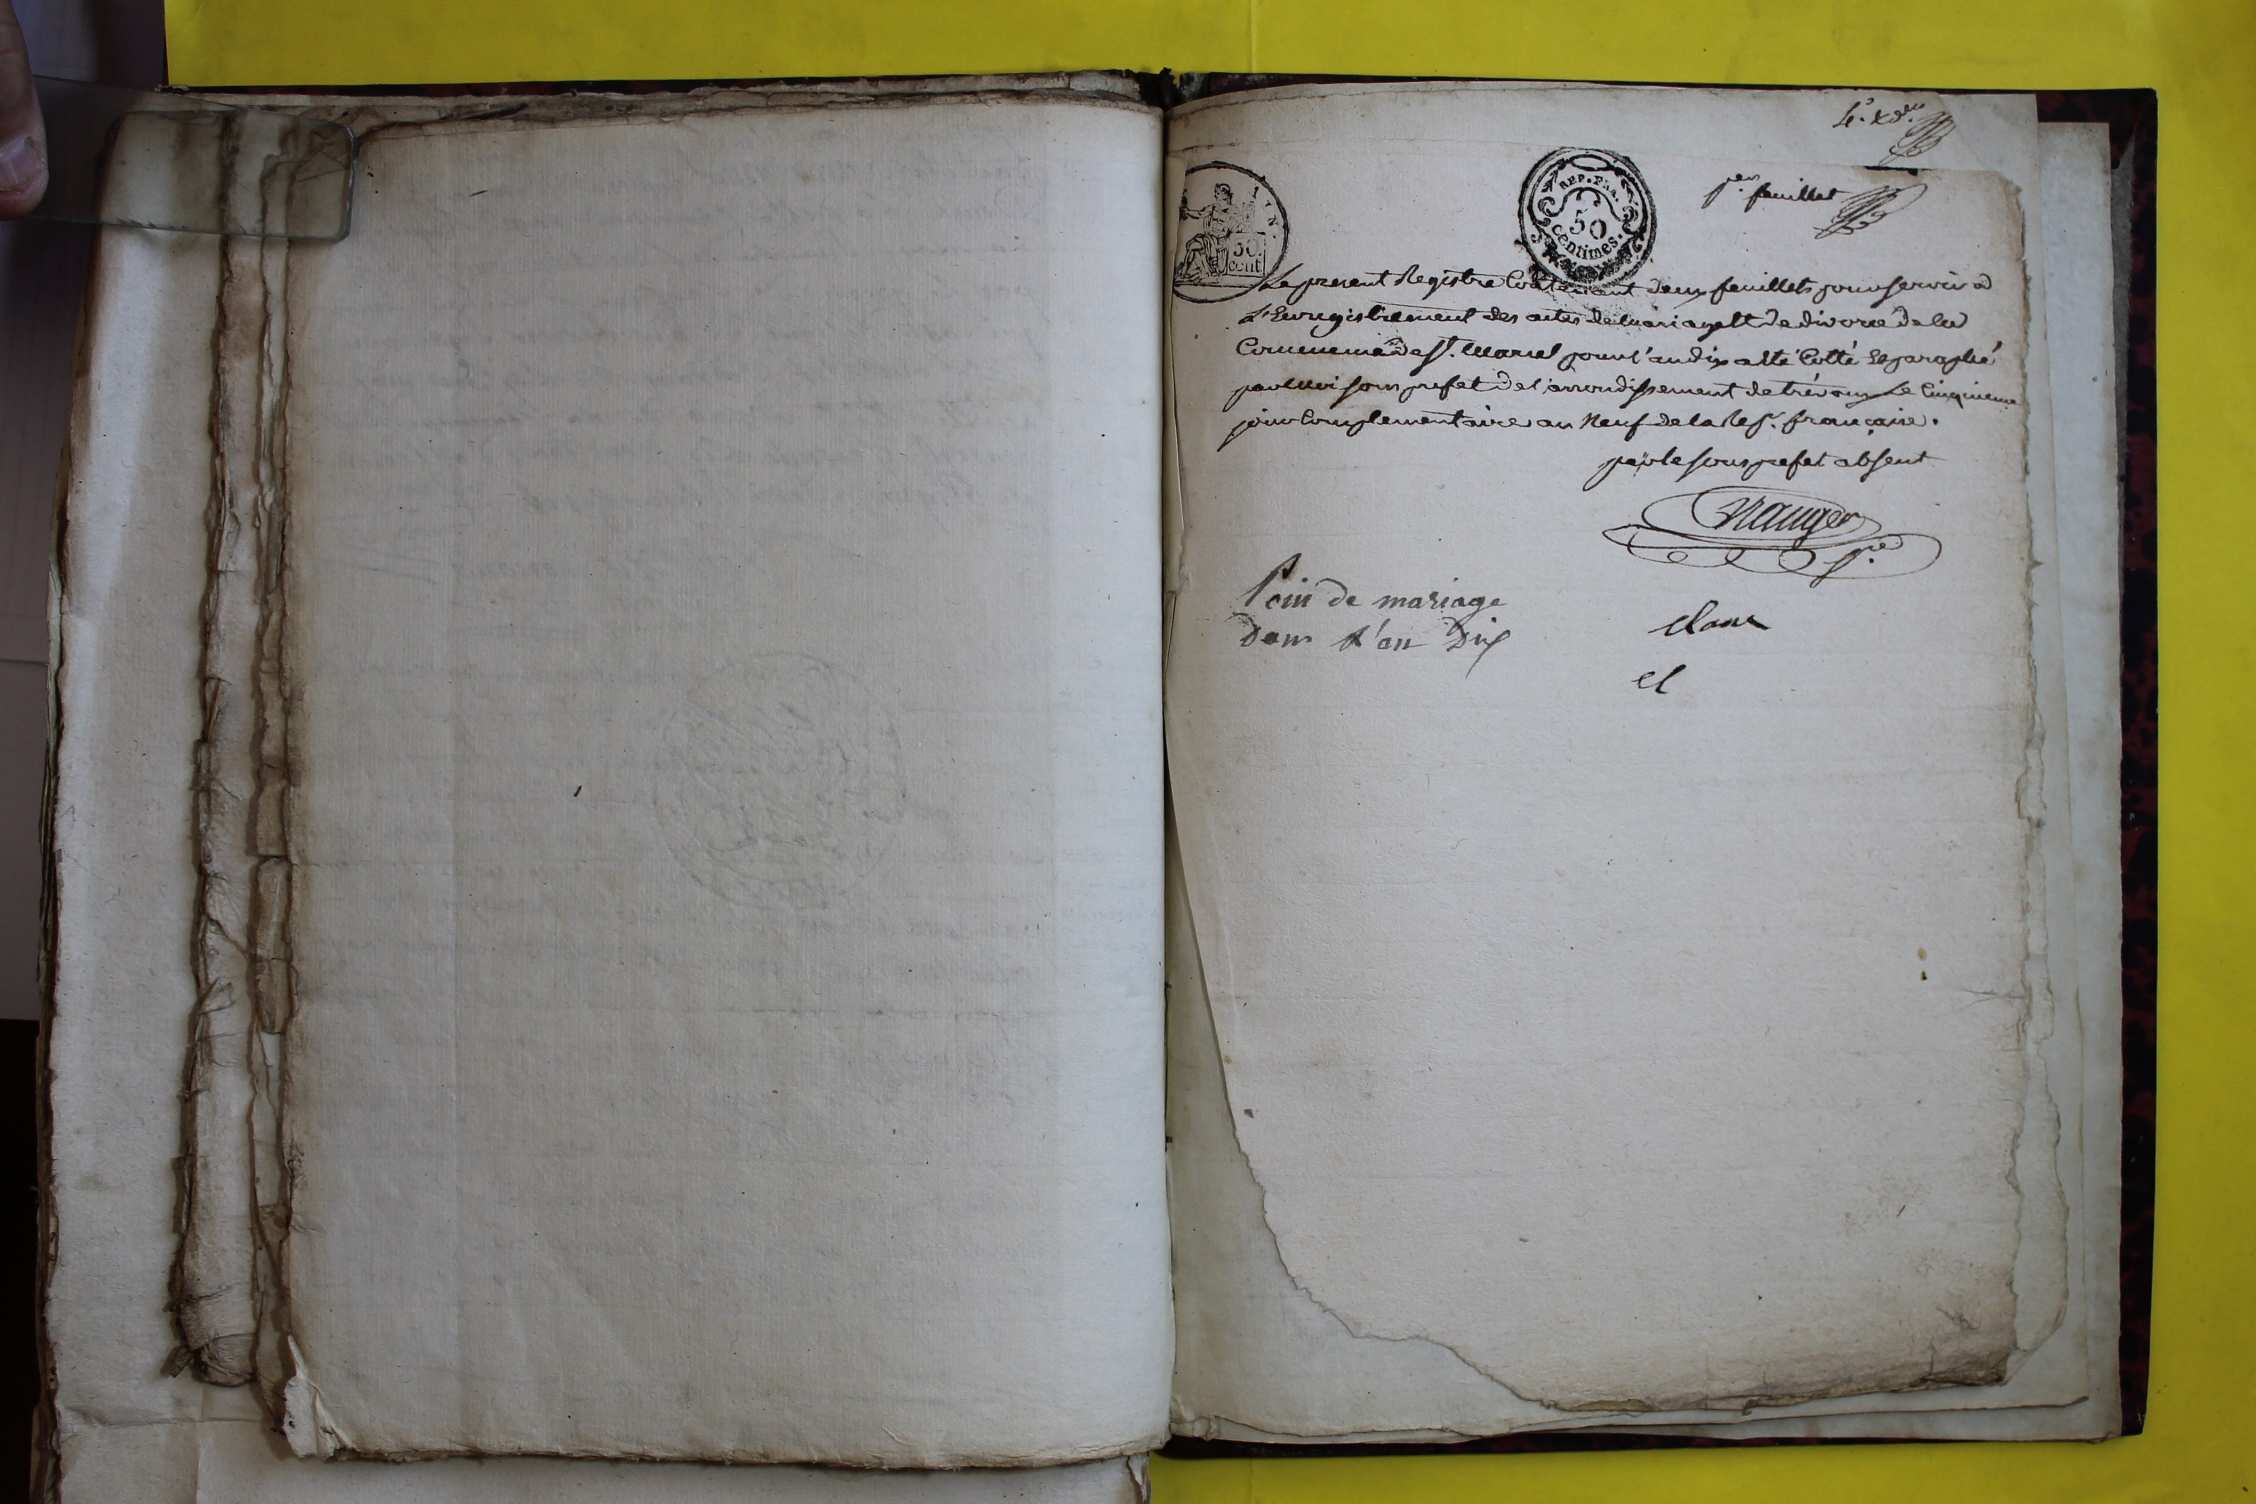 1.er feuillet
50 cent
REP. FRA.
50
centimes.
Le present Registre Contenant deux feuillets pour servir a
L'Enregistrement des actes de mariage et de divorce de la
Commune de St. Marcel pour l'an dix a été Cotté et paraphé
par moi sous prefet de l'arrondissement de trévoux Le Cinquieme
jour Complementaire an Neuf de la Rep. française.
par le sous prefet absent
Poin de mariage
dans l'an Dix